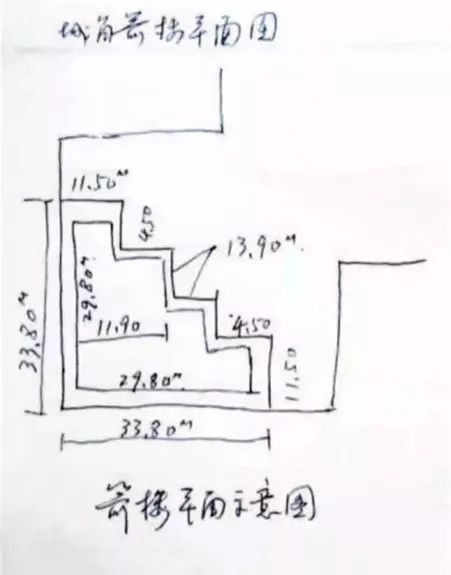 城角箭楼平面图
11.50M
4.50
13.90M
29.80M
33.80M
11.90
4.50
11.50
29.80M
33.80M
箭楼平面示意图